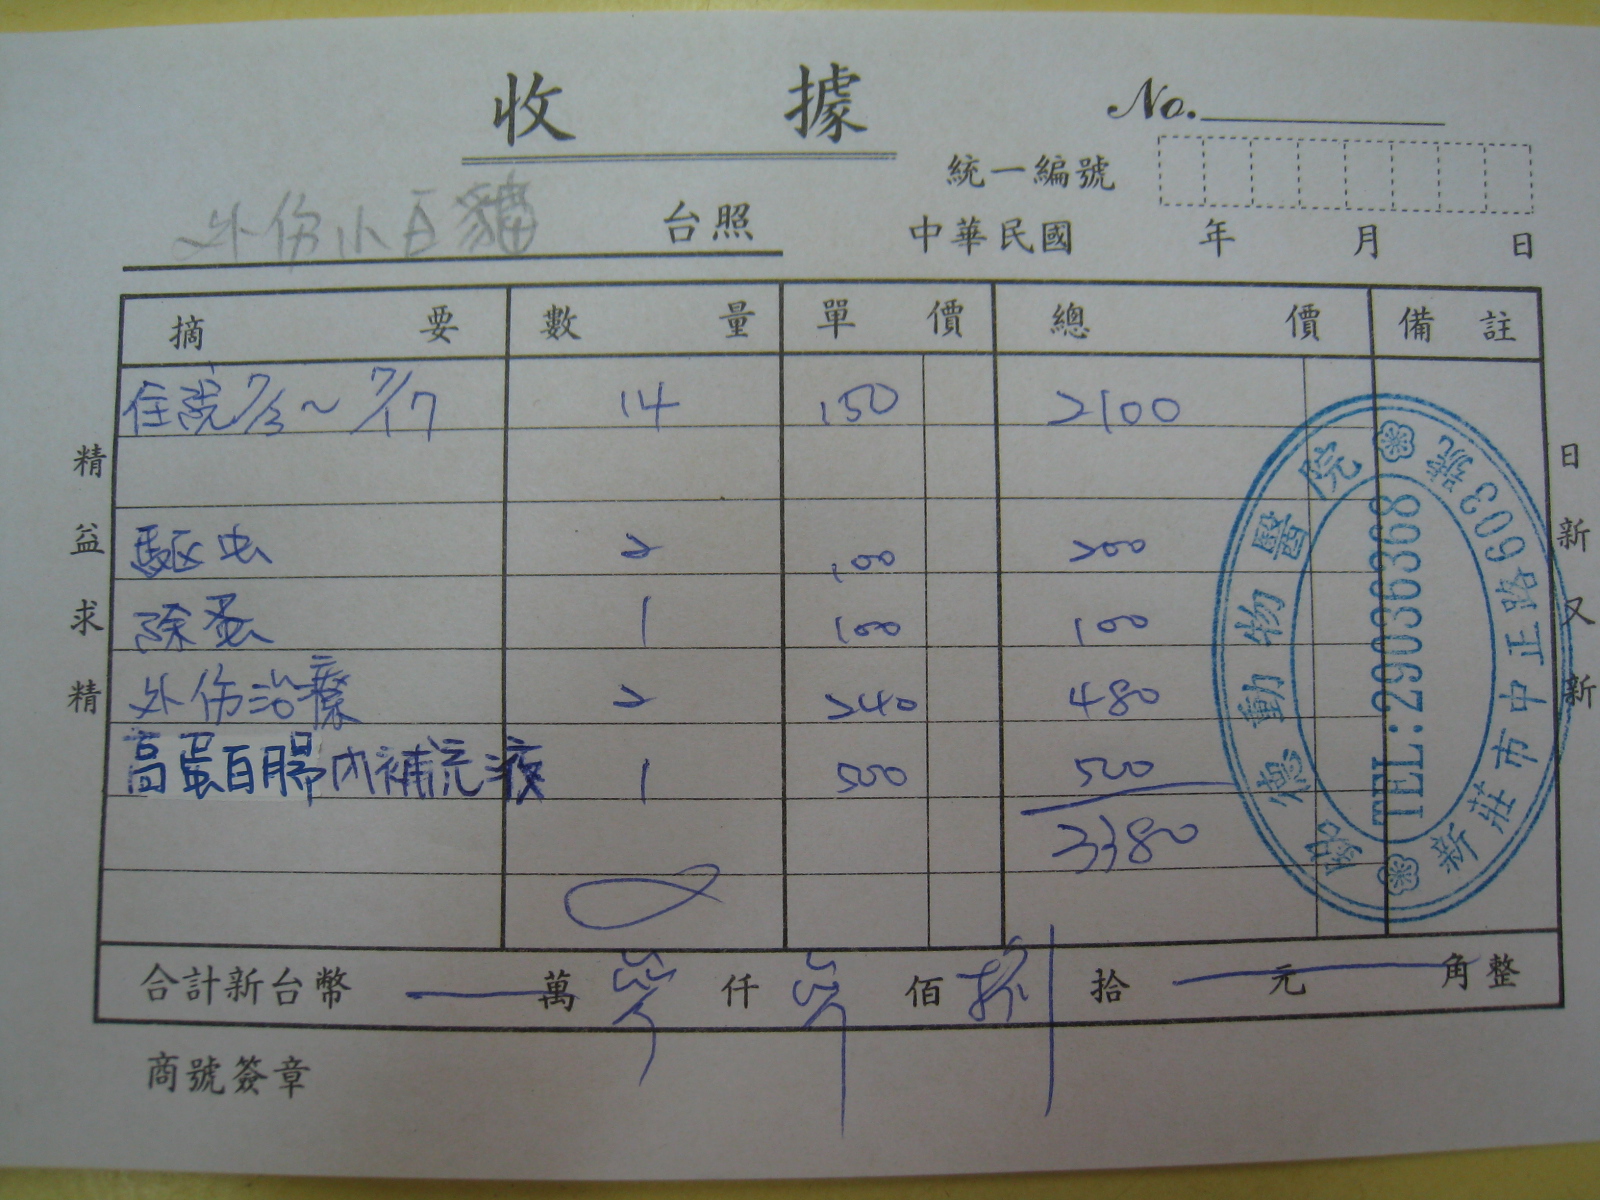 收 據
No.
統一編號
外伤小白貓 台照
中華民國 年 月 日
摘 要 數 量 單 價 總 價 備 註
住院 7/3~7/17 14 150 2100
駆虫 2 100 200
除蚤 1 100 100
外伤治療 2 240 480
高蛋白腸內補充液 1 500 500
3380
合計新台幣 萬 叁 仟 叁 佰 捌 拾 元 角整
商號簽章
精益求精
日新又新
德動物醫院
TEL:29036368
新莊市中正路603號